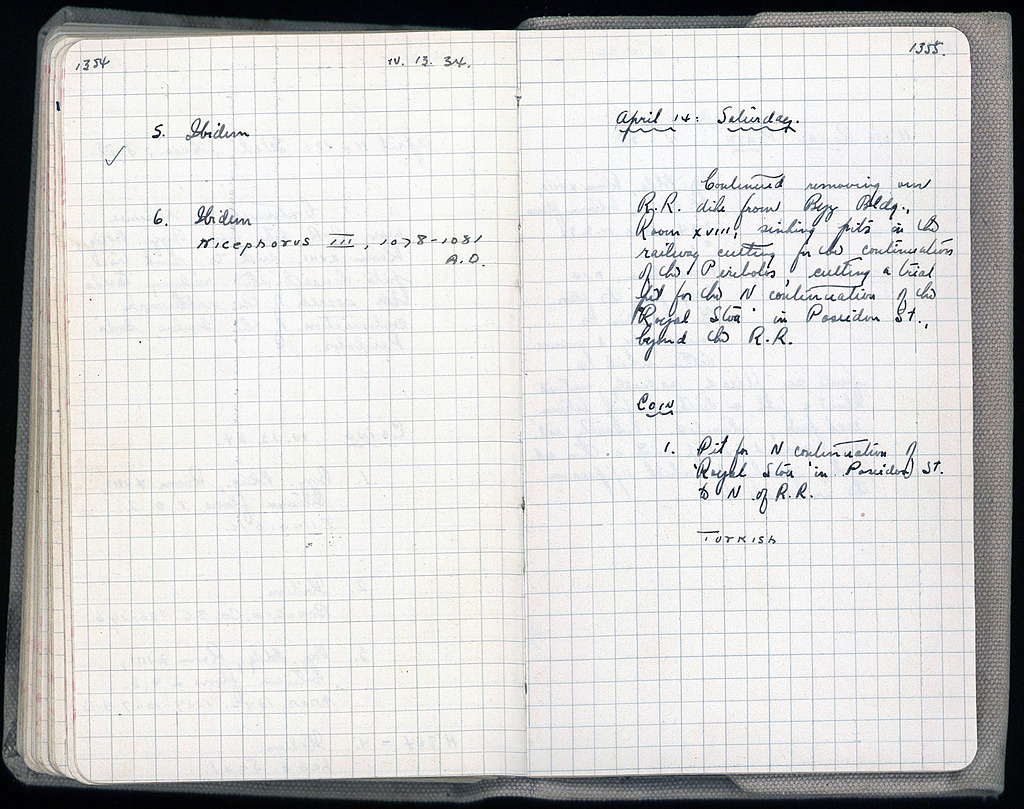 1354
IV. 13. 34.
5. Ibidem
✓
6. Ibidem
Nicephorus III, 1078-1081
A.D.
1355.
April 14: Saturday.
Continued removing our
R.R. dike from Byz Bldg.,
Room XVIII, sinking pits in the
railway cutting for the continuation
of the Peribolos, cutting a trial
pit for the N continuation of the
'Royal Stoa' in Poseidon St.,
beyond the R.R.
COIN
1. Pit for N continuation of
'Royal Stoa' in Poseidon St.
to N of R.R.
Turkish